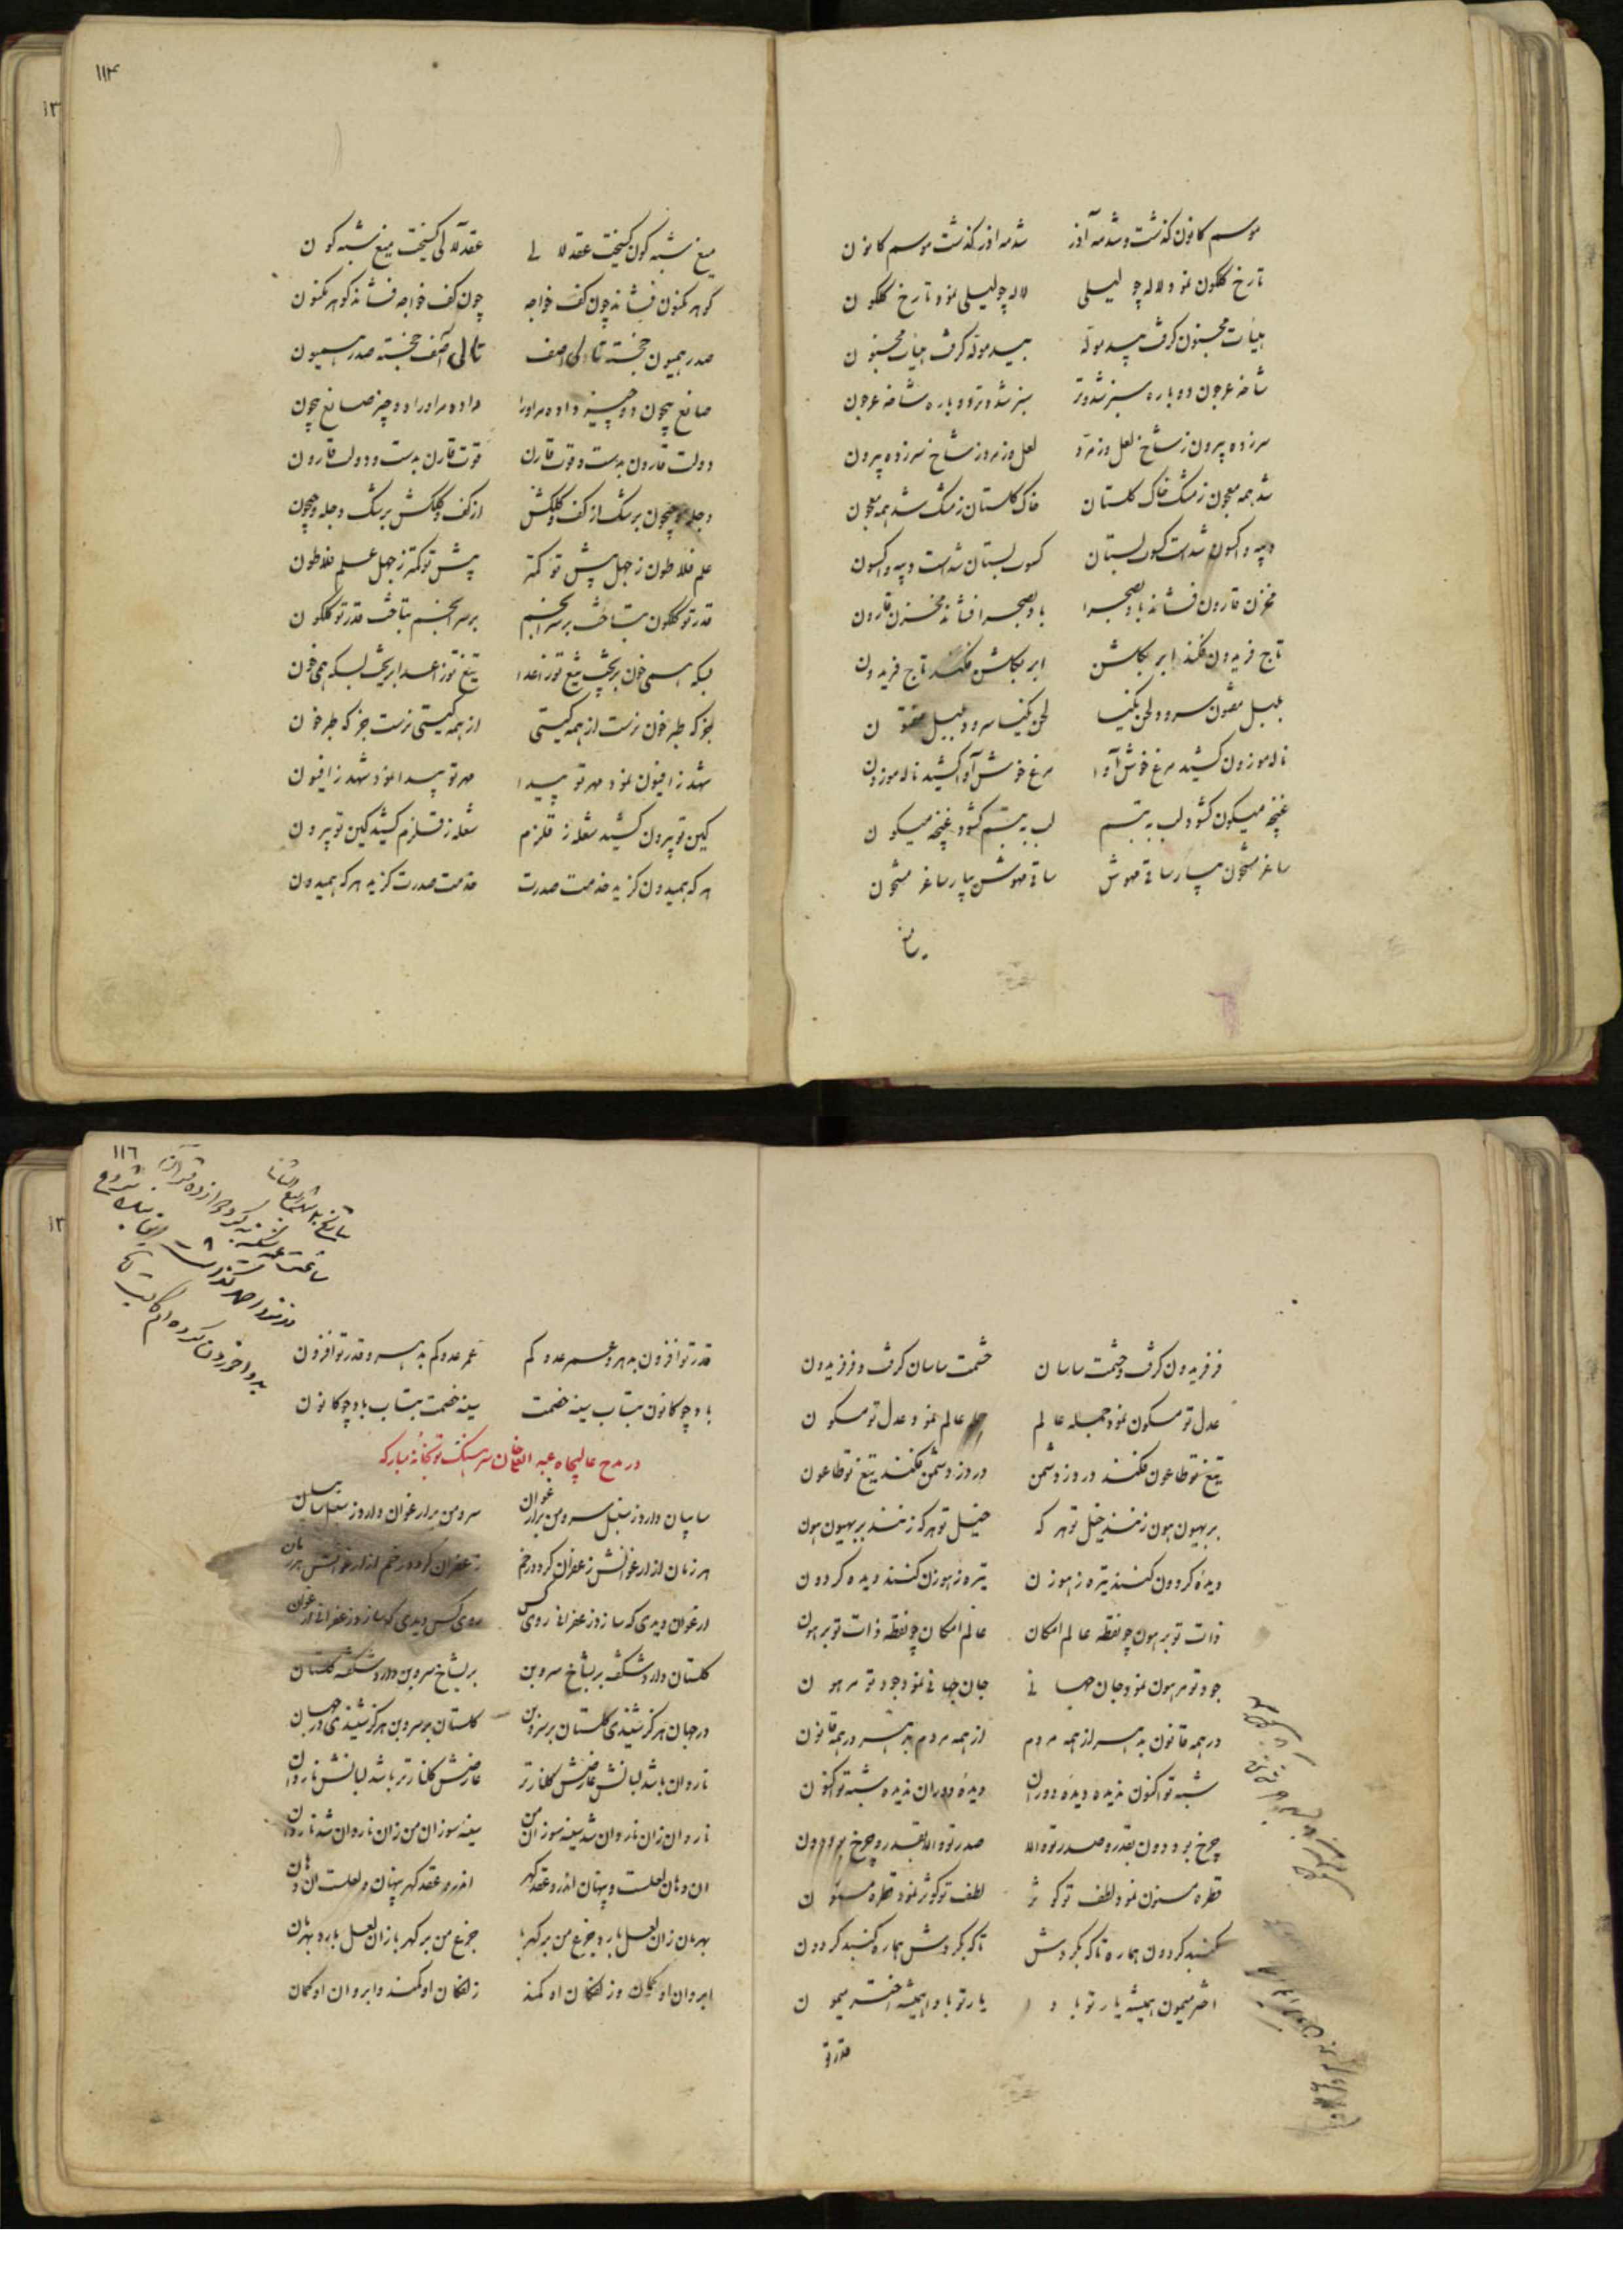 ۱۱۴
موسم کانون گذشت و شد مه آذر شد مه آذر گذشت موسم کانون
تا رخ گلگون نمود لاله چو لیلی لاله چو لیلی نمود تا رخ گلگون
هیأت مجنون گرفت بید موله بید موله گرفت هیأت مجنون
شاخه عرجون دوباره سبز شد و تر سبز شد و تر دوباره شاخه عرجون
سر زده بیرون ز شاخ لعل و زمرد لعل و زمرد ز شاخ سر زده بیرون
شد همه معجون ز مشک خاک گلستان خاک گلستان ز مشک شد همه معجون
دیبه و اکسون شد است کسوت بستان کسوت بستان شد است دیبه و اکسون
مخزن قارون فشاند باد بصحرا باد بصحرا فشاند مخزن قارون
تاج فریدون فکند ابر بگلشن ابر بگلشن فکند تاج فریدون
بلبل مفتون سرود لحن نکیسا لحن نکیسا سرود بلبل مفتون
ناله موزون کشید مرغ خوش آوا مرغ خوش آوا کشید ناله موزون
غنچه میگون گشود لب به تبسم لب به تبسم گشود غنچه میگون
ساغر مشحون بیار ساقی مهوش ساقی مهوش بیار ساغر مشحون
میغ شبه گون گسیخت عقد لالی عقد لآلی گسیخت میغ شبه گون
گوهر مکنون فشاند چون کف خواجه چون کف خواجه فشاند گوهر مکنون
صدر همیون خجسته تالی آصف تالی آصف خجسته صدر همیون
صانع بیچون دو چیز داده مر اورا داده مر اورا دو چیز صانع بیچون
دولت قارون بدست و قوت قارن قوت قارن بدست و دولت قارون
دجله و جیحون برشک از کف و کلکش از کف و کلکش برشک دجله و جیحون
علم فلاطون ز جهل پیش تو کمتر پیش تو کمتر ز جهل علم فلاطون
قدر تو گلگون بتاخت بر سر انجم بر سر انجم بتاخت قدر تو گلگون
بسکه همی خون بریخت تیغ تو ز اعدا تیغ تو ز اعدا بریخت بسکه همی خون
جز که طبر خون نرست از همه گیتی از همه گیتی نرست جز که طبر خون
شهد ز افیون نمود مهر تو پیدا مهر تو پیدا نمود شهد ز افیون
کین تو بیرون کشید شعله ز قلزم شعله ز قلزم کشید کین تو بیرون
هر که همیدون گزید خدمت صدرت خدمت صدرت گزید هر که همیدون
۱۱۶
فر فریدون گرفت و حشمت ساسان حشمت ساسان گرفت و فر فریدون
عدل تو مسکون نمود جمله عالم جمله عالم نمود عدل تو مسکون
تیغ تو طاعون فکند در دز دشمن در دز دشمن فکند تیغ تو طاعون
بر بهیون هون زنند خیل تو هر که خیل تو هر که زنند بر بهیون هون
دیده گردون کنند تیره ز هوزن تیره ز هوزن کنند دیده گردون
ذات تو برهون چو نقطه عالم امکان عالم امکان چو نقطه ذات تو برهون
جود تو مرهون نمود جان جهانی جان جهانی نمود جود تو مرهون
در همه قانون بهی از همه مردم از همه مردم بهی در همه قانون
شبه تو اکنون ندیده دیده دوران دیده دوران ندیده شبه تو اکنون
چرخ بود دون بقدر و صدر تو والا صدر تو والا بقدر و چرخ بود دون
قطره مسنون نمود لطف تو کوثر لطف تو کوثر نمود قطره مسنون
گنبد گردون هماره تا که بگردش تا که بگردش هماره گنبد گردون
اختر میمون همیشه یار تو بادا یار تو بادا همیشه اختر میمون
قدر تو
قدر تو افزون بدهر و عمر عدو کم عمر عدو کم بدهر و قدر تو افزون
باد چو کانون بتاب سینه خصمت سینه خصمت بتاب باد چو کانون
در مدح عالیجاه عبد الله خان سرهنگ توپخانه مبارکه
سایبان دارد ز سنبل سرو من بر ارغوان سرو من بر ارغوان دارد ز سنبل سایبان
هر زمان از ارغوانش زعفران گردد رخم زعفران گردد رخم از ارغوانش هر زمان
ارغوان دیدی که سازد زعفرانی روی کس روی کس دیدی که سازد زعفرانی ارغوان
گلستان دارد شکفته بر بشاخ سروبن بر بشاخ سروبن دارد شکفته گلستان
در جهان هرگز شنیدی گلستان بر سروبن گلستان بر سروبن هرگز شنیدی در جهان
ناروان باشد لبانش عارضش گلنار تر عارضش گلنار تر باشد لبانش ناروان
ناروان زان ناروان شد سینه سوزان من سینه سوزان من زان ناروان شد ناروان
ان دهان لعلست و پنهان اندرو عقد گهر اندرو عقد گهر پنهان و لعلست ان دهان
بهرمان زان لعل بارد جزع من بر کهربا جزع من بر کهربا زان لعل بارد بهرمان
ابروان او کمان و زلفکان او کمند زلفکان او کمند و ابروان او کمان